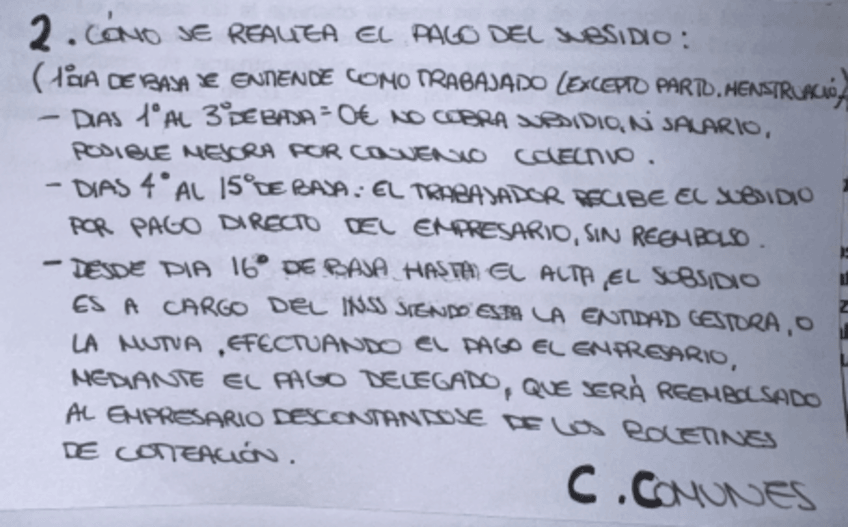 2. CÓMO SE REALIZA EL PAGO DEL SUBSIDIO:
(1º DIA DE BAJA SE ENTIENDE COMO TRABAJADO (EXCEPTO PARTO, MENSTRUACIÓ)
- DIAS 1º AL 3º DE BAJA = 0€ NO COBRA SUBSIDIO, NI SALARIO,
POSIBLE MEJORA POR CONVENIO COLECTIVO.
- DIAS 4º AL 15º DE BAJA: EL TRABAJADOR RECIBE EL SUBSIDIO
POR PAGO DIRECTO DEL EMPRESARIO, SIN REEMBOLSO.
- DESDE DIA 16º DE BAJA HASTA EL ALTA, EL SUBSIDIO
ES A CARGO DEL INSS SIENDO ESTA LA ENTIDAD GESTORA, O
LA MUTUA, EFECTUANDO EL PAGO EL EMPRESARIO,
MEDIANTE EL PAGO DELEGADO, QUE SERÀ REEMBOLSADO
AL EMPRESARIO DESCONTANDOSE DE LOS BOLETINES
DE COTIZACIÓN.
C. COMUNES